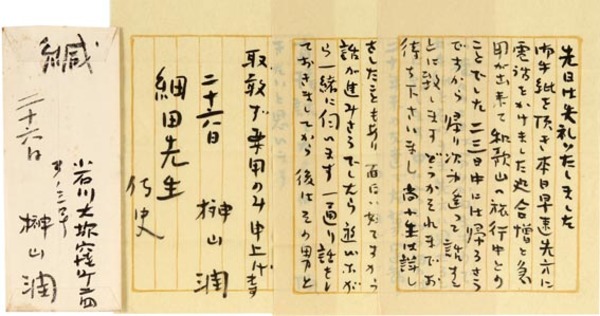 先日は失礼いたしました
御手紙を頂き本日早速先方に
電話をかけました処合憎と急
用が出来て和歌山の旅行中との
ことでした 二三日中には帰るさう
ですから 帰り次第逢って話する
ことに致します どうかそれまでお
待ち下さいまし 尚小生は
をしたこともあり 面
話が進みさうでしたら
ら一緒に伺います 一通り話をし
ておきましてから 後はその男と
取敢ず要用のみ申上げます
二十六日
榊山潤
細田先生
侍史
緘
二十六日
小石川大塚窪町二四
榊山潤